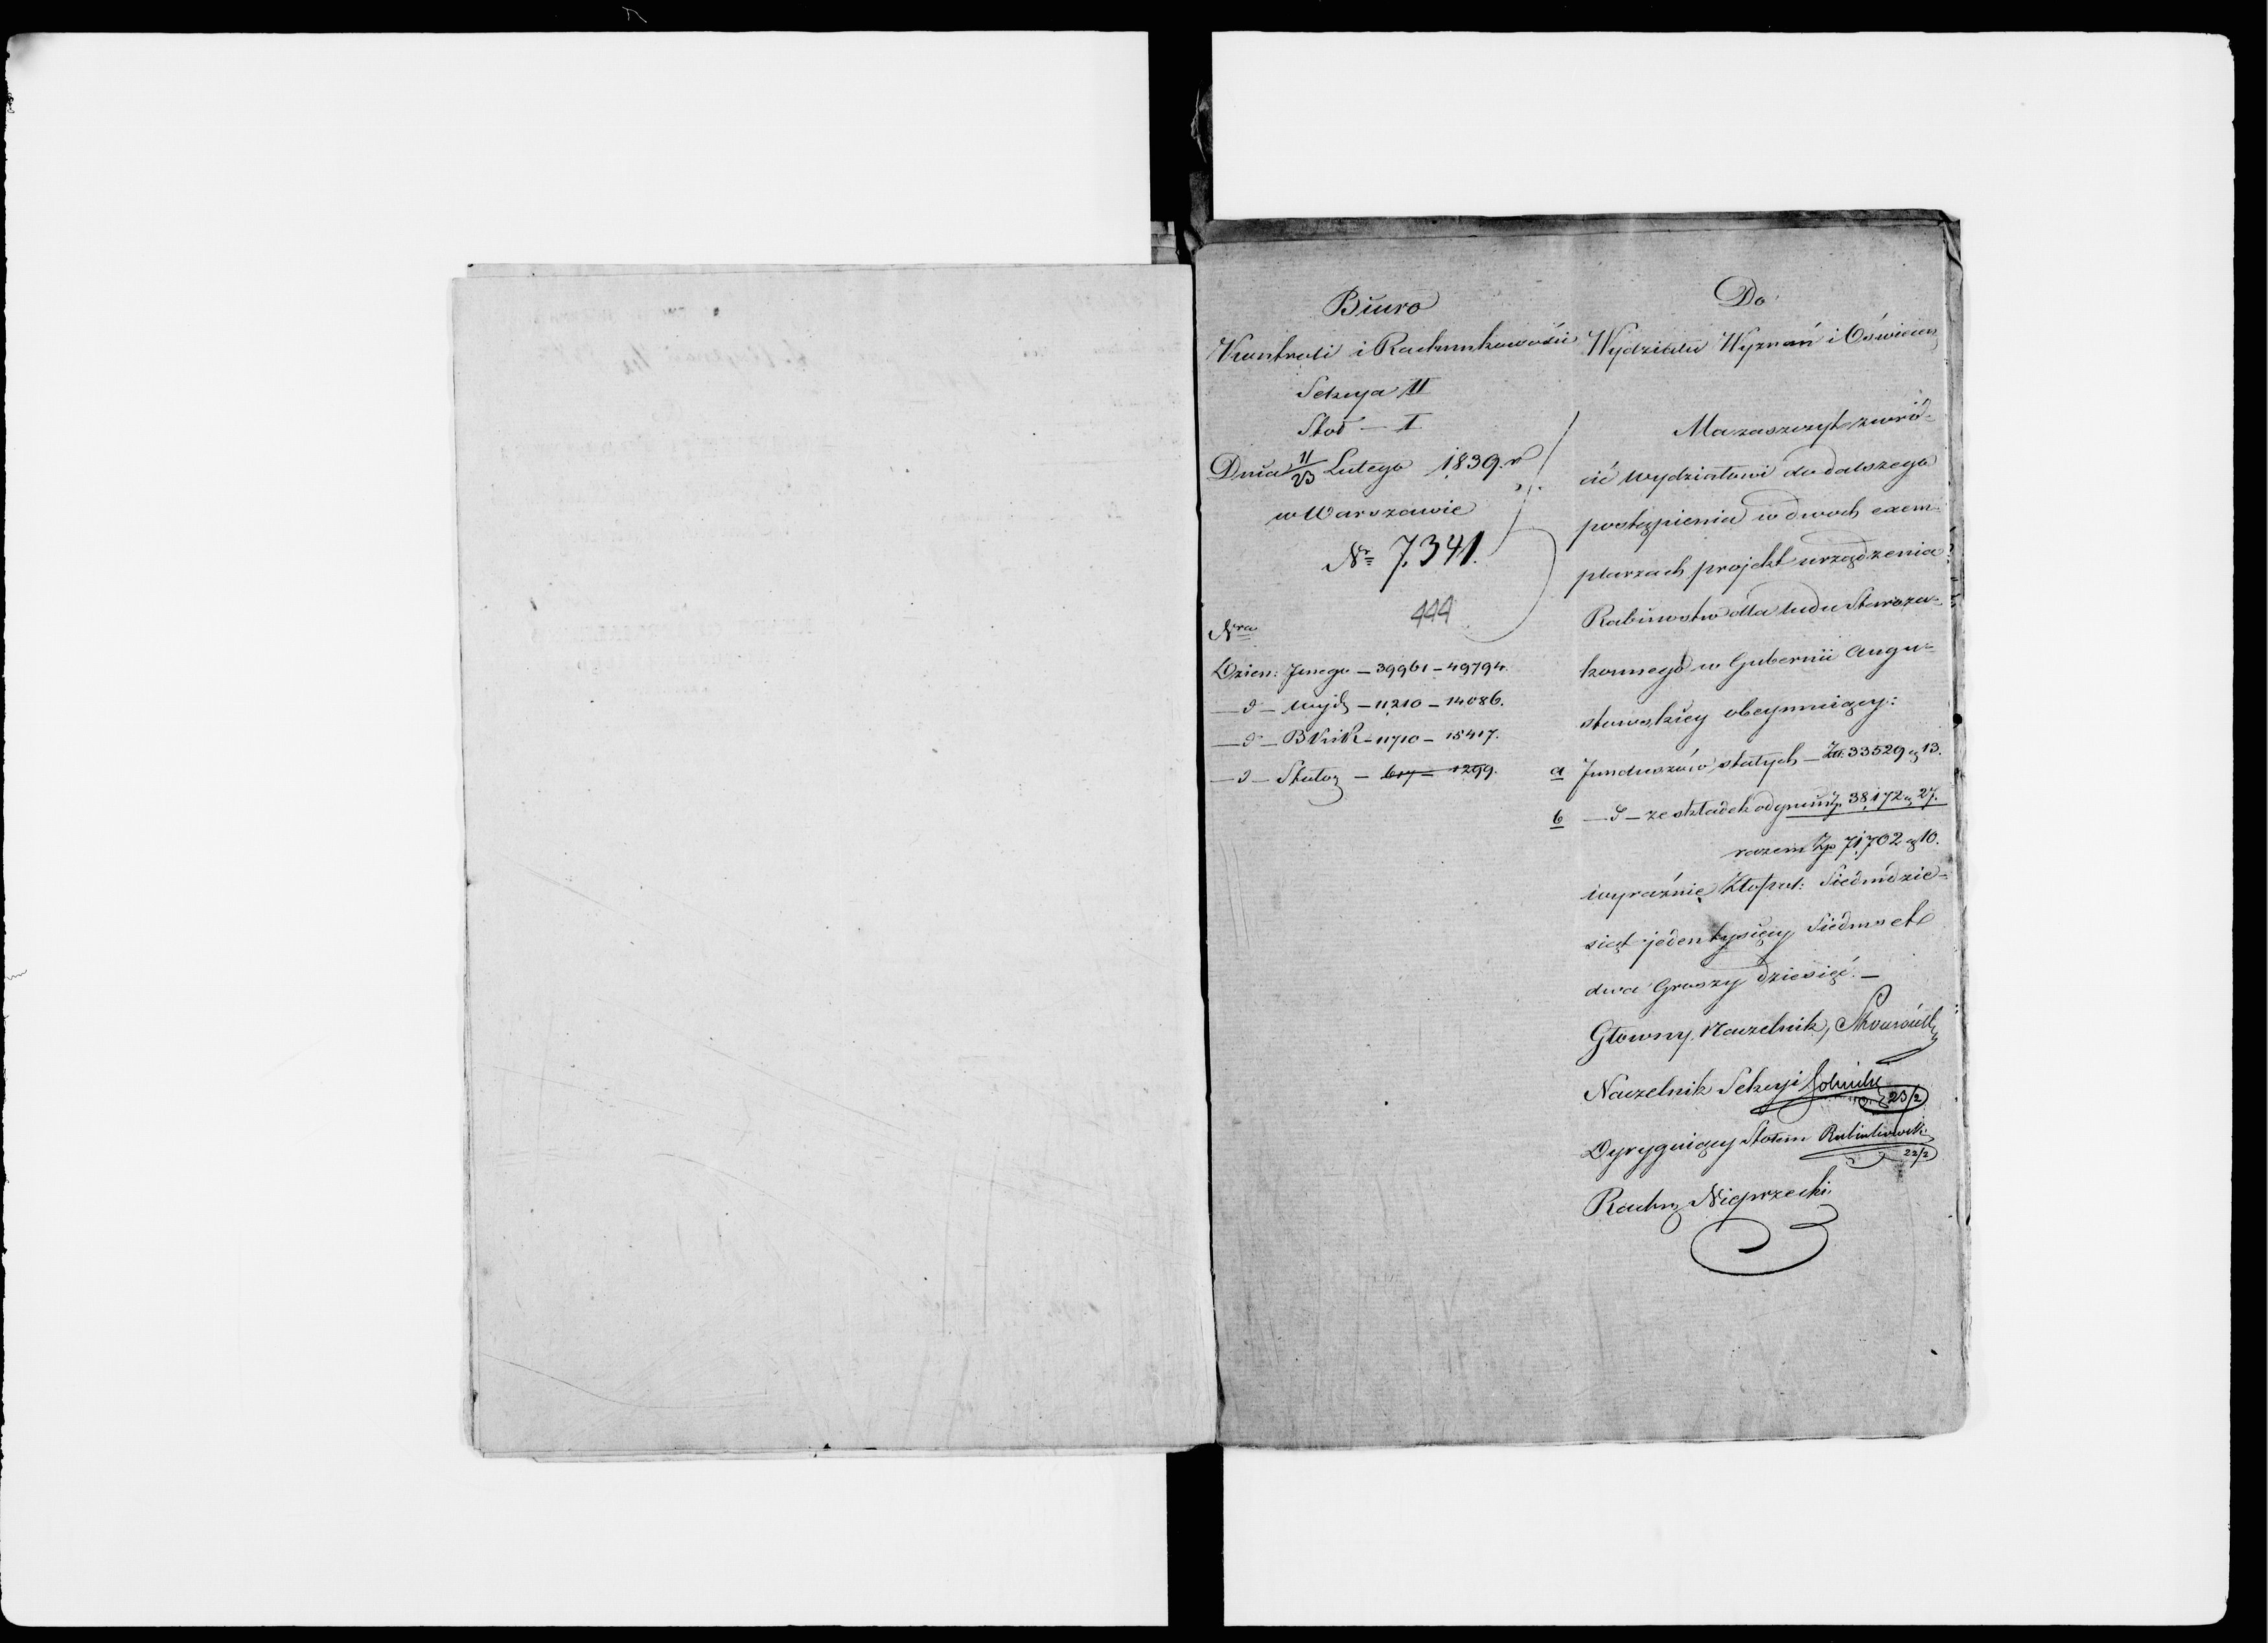 Biuro
Kontroli i Rachunkowości
Sekcya II
Stół — I
Dnia 11/23 Lutego 1839. r
w Warszawie
Nr 7,341.
444
Nra
Dzien: Jnego — 39961 — 49794.
— d — Wydz — 11210 — 14086.
— d — B K i R — 11710 — 15417.
— d — Stołoz — 617 — 1299.
Do
Wydziału Wyznań i Oświecen
Ma zaszczyt zwró-
cić Wydziałowi do dalszego
postąpienia w dwóch exem-
plarzach projekt urządzenia
Rabinostw dla ludu Staroza-
konnego w Gubernii Augu-
stowskiey obeymuiący:
a Funduszów stałych — Zł. 33529 g 13.
b — d — ze składek od gmin Zp. 38,172 g 27.
razem Zp 71,702 g 10.
wyraźnie Złot pol: Siedmdzie-
siąt jeden tysięcy Siedmset
dwa Groszy dziesięć. —
Główny Naczelnik,
Naczelnik Sekcyi
23/2
Dyryguiący Stołem
22/2
Rachm Nieprzecki